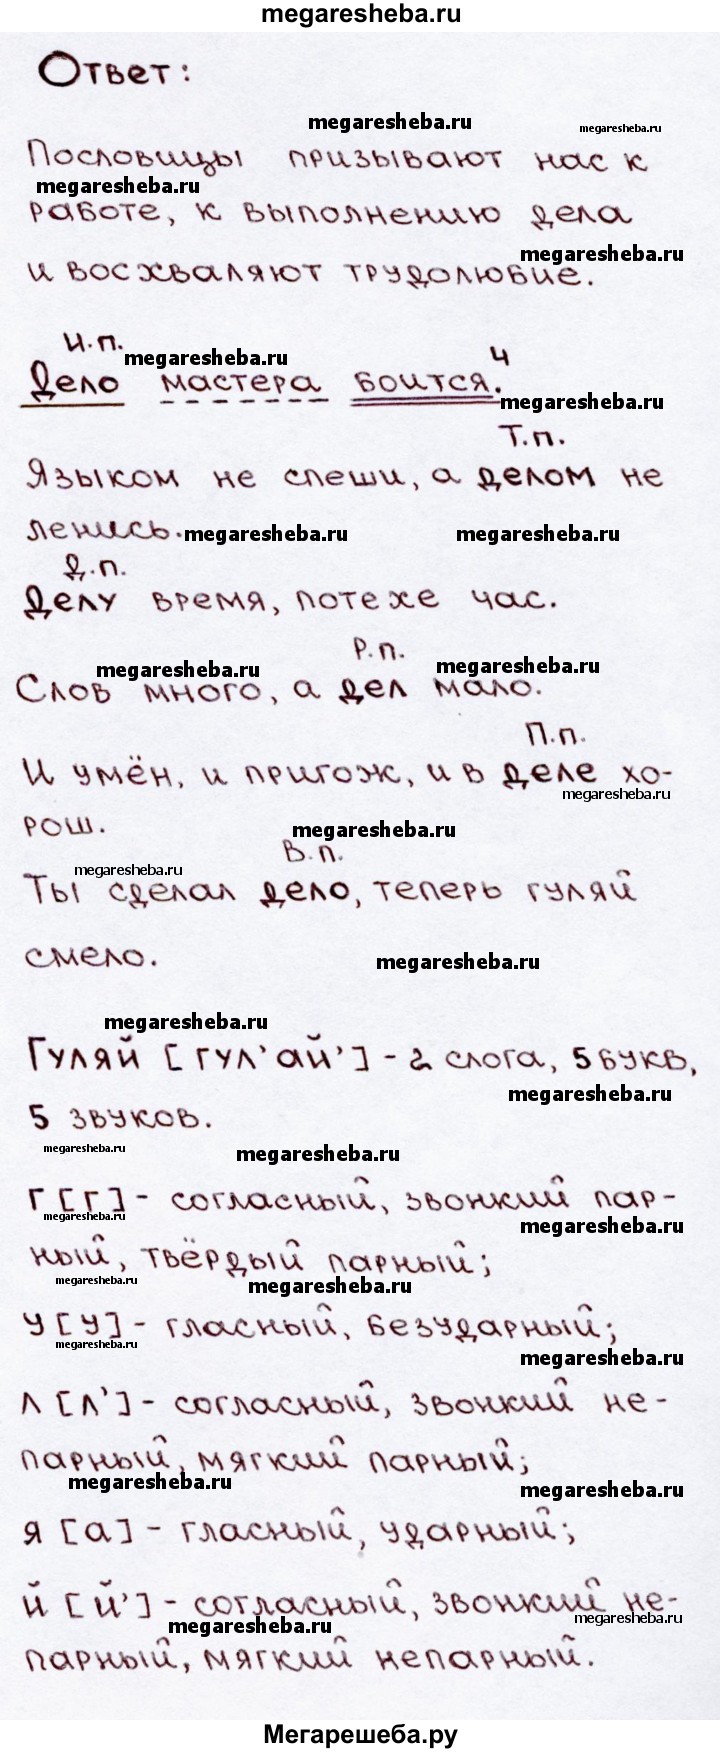 megaresheba.ru
Ответ:
megaresheba.ru megaresheba.ru
Пословицы призывают нас к
megaresheba.ru
работе, к выполнению дела
megaresheba.ru
и восхваляют трудолюбие.
И.п. 4
megaresheba.ru
Дело мастера боится.
megaresheba.ru
Т.п.
Языком не спеши, а делом не
ленись. megaresheba.ru megaresheba.ru
Д.п.
Делу время, потехе час.
Р.п.
megaresheba.ru megaresheba.ru
Слов много, а дел мало.
П.п.
И умён, и пригож, и в деле хо-
megaresheba.ru
рош. megaresheba.ru
В.п.
megaresheba.ru
Ты сделал дело, теперь гуляй
смело. megaresheba.ru
megaresheba.ru
Гуляй [гул’ай’] - 2 слога, 5 букв,
megaresheba.ru
5 звуков.
megaresheba.ru megaresheba.ru
Г [г] - согласный, звонкий пар-
megaresheba.ru megaresheba.ru
ный, твёрдый парный;
megaresheba.ru megaresheba.ru
у [у] - гласный, безударный;
megaresheba.ru megaresheba.ru
л [л’] - согласный, звонкий не-
парный, мягкий парный;
megaresheba.ru megaresheba.ru
я [а] - гласный, ударный;
й [й’] - согласный, звонкий не-
megaresheba.ru megaresheba.ru
парный, мягкий непарный.
Мегарешеба.ру